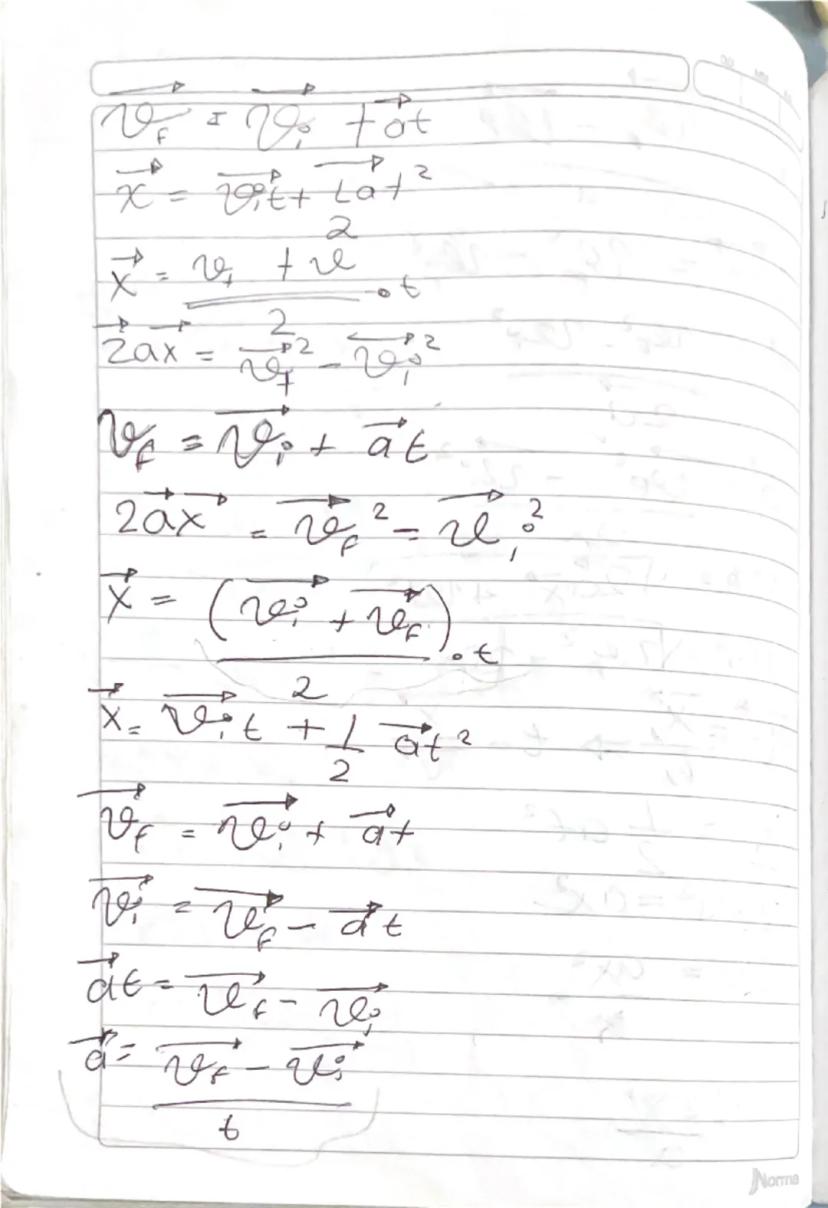 v⃗f = v⃗i + a⃗t
x⃗ = v⃗it + 1a⃗t²
2
x⃗ = v₁ + v
. t
2
2a⃗x⃗ = v⃗f² - v⃗i²
vf = v⃗i + a⃗t
2a⃗x⃗ = v⃗f² - v⃗i²
x⃗ = (v⃗i + v⃗f)
. t
2
x⃗ = v⃗i t + 1/2 a⃗t²
v⃗f = v⃗i + a⃗t
v⃗i = v⃗f - a⃗t
a⃗t = v⃗f - v⃗i
a⃗ = v⃗f - v⃗i
t
Norma